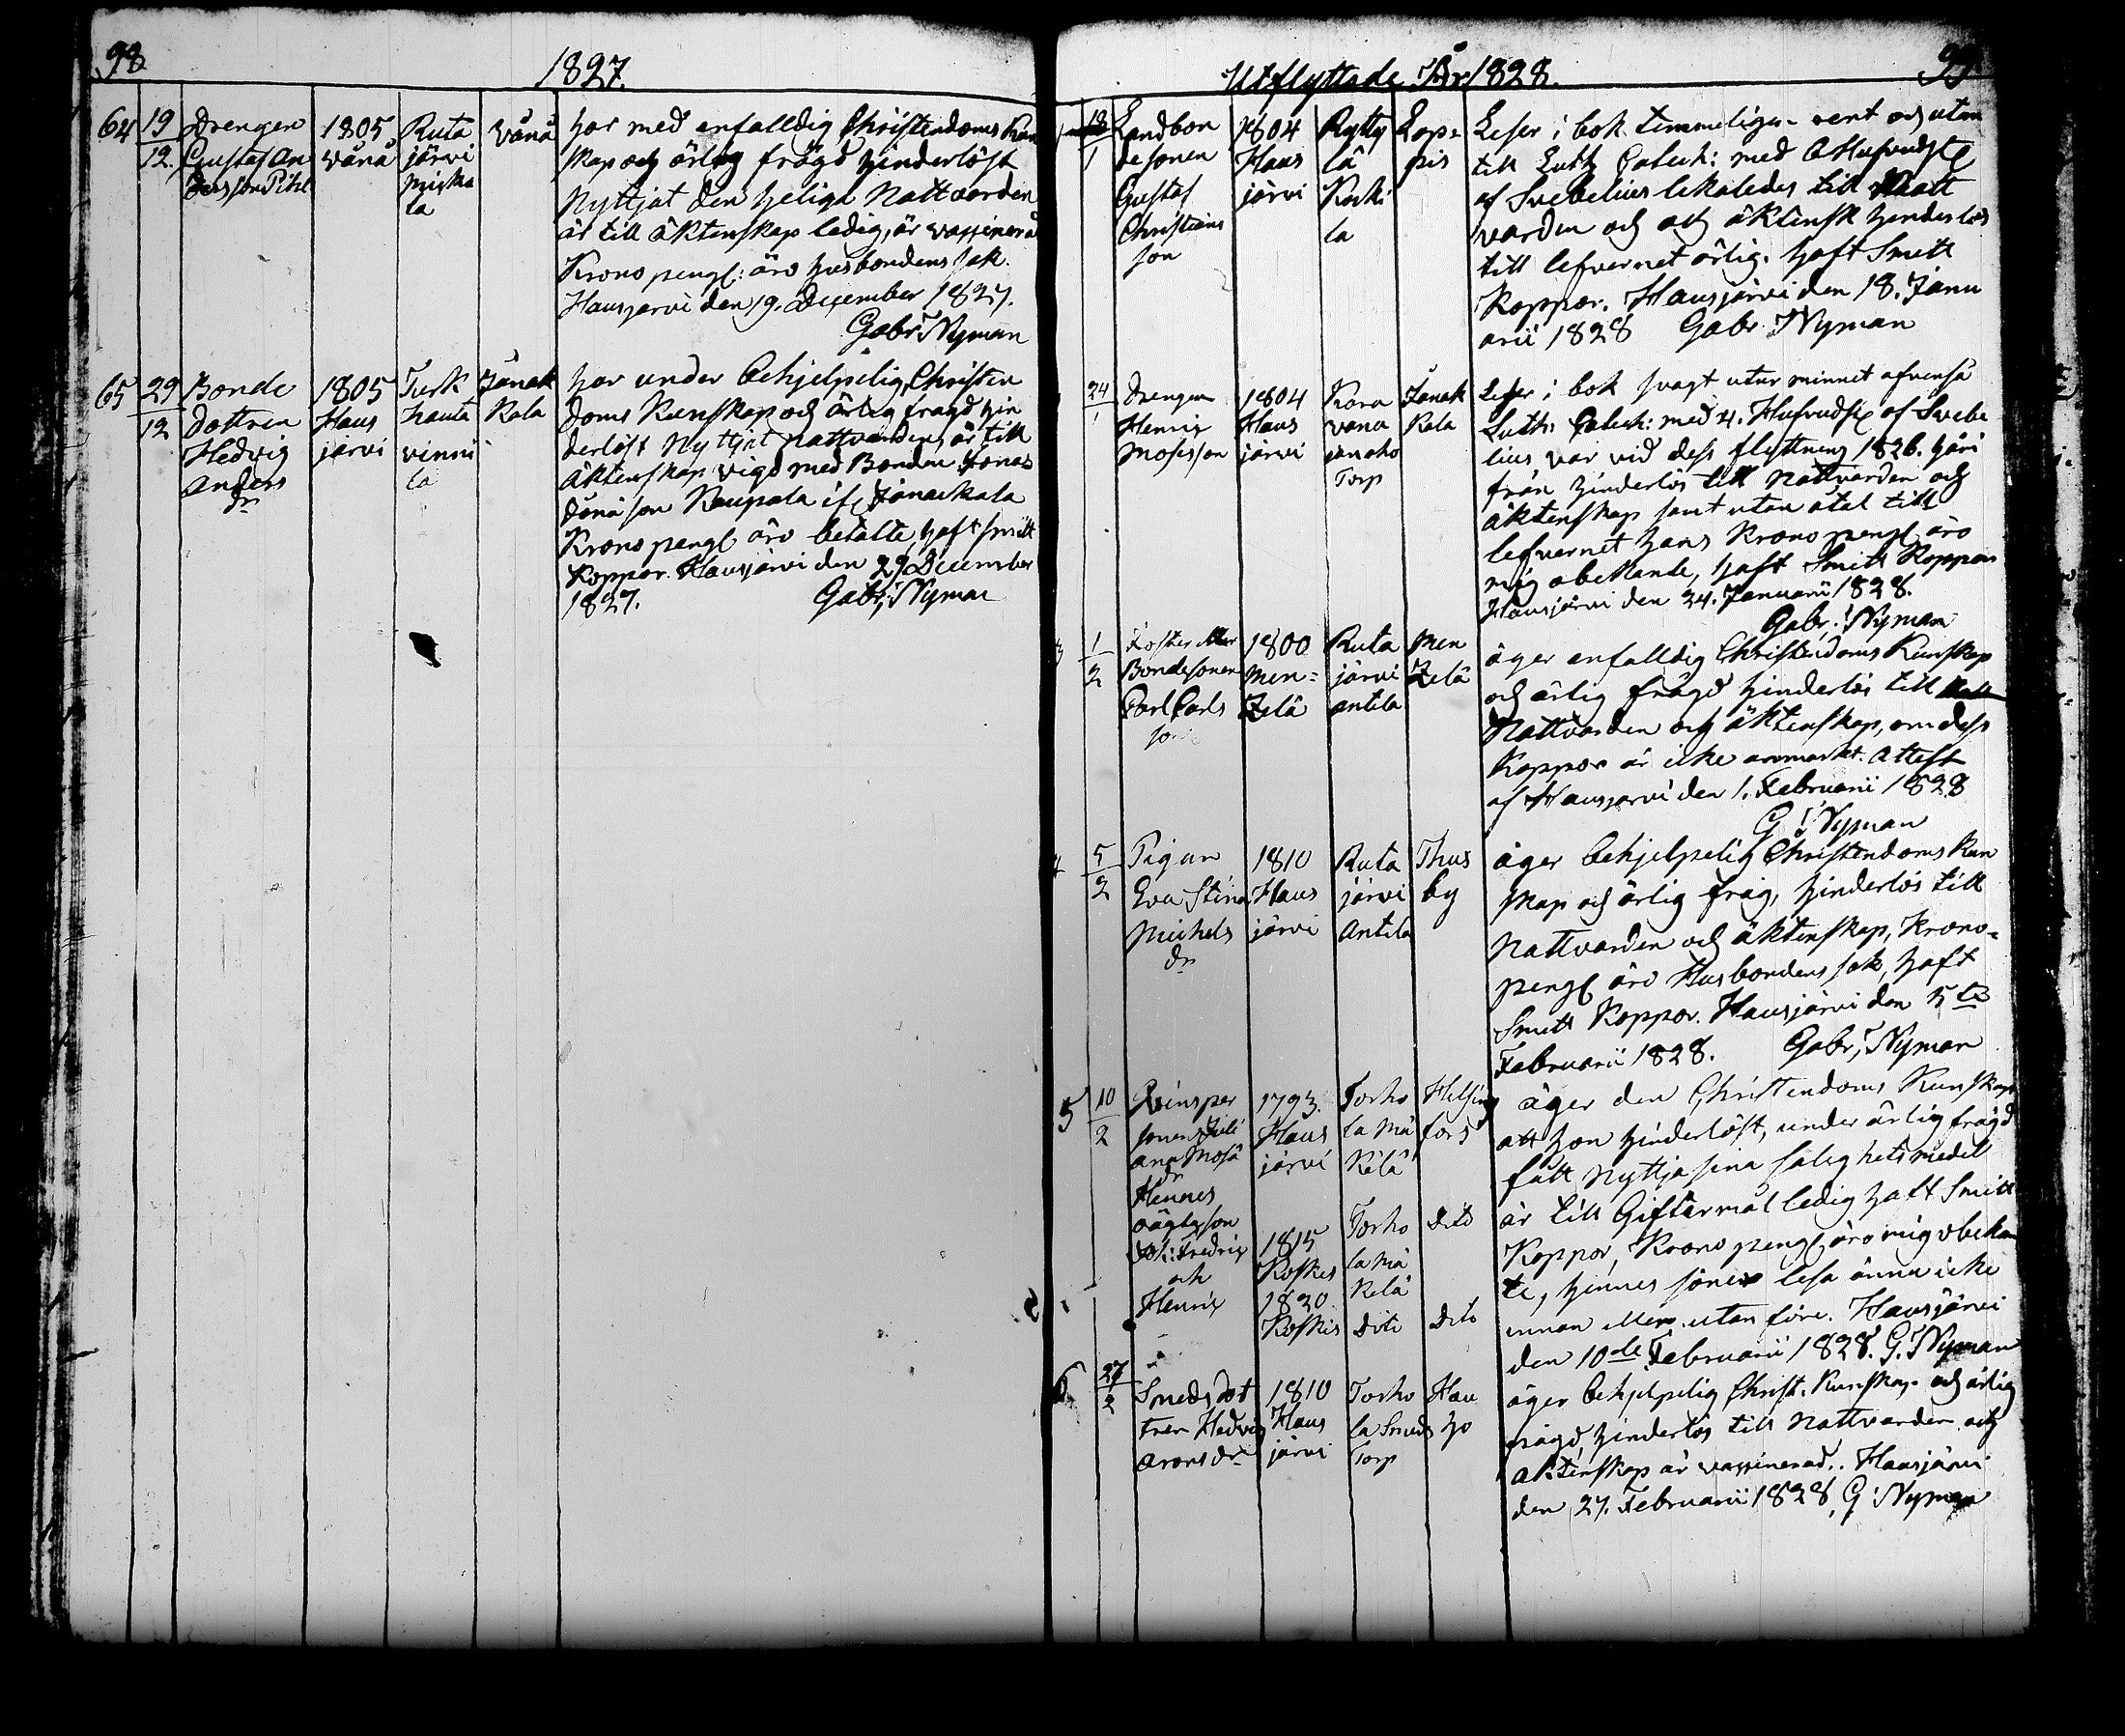 98
1827.
64 19/12. Drengen 1805 Ruta Vånå har med enfalldig Christendoms Kun
Gustaf An Vånå järvi skap och ärlig frägd hinderlöst
dersson Pihl Miska Nyttjat den heliga Nattvarden
la är till äktenskap ledig, är vaxsinerad
Krono peng: äro husbondens sak.
Hausjärvi den 19. December 1827.
Gabr. Nyman
65 29/12 Bonde 1805 Turk Janak har under behjelpelig Christen
Dottren Haus hauta Kala doms Kunskap och ärlig frägd hin
Hedvig järvi vinni derlöst Nyttjat nattvarden, är till
Anders la äktenskap vigd med Bonden Jonas
dr Jonä son Kaupala if Janackala
Krono peng äro betalte, haft smitt
Koppor. Hausjärvi den 29 December
1827. Gabr. Nyman
Utflyttade År 1828. 99
18/1 Landbon 1804 Rytty Lop= Leser i bok temmeligen rent och utan
desonen Haus lä pis till Luth Catech: med Hufvudst
Gustaf järvi Koski af Svebelius lekaledes till Natt
Christians la varden och och äktensk hinderlös
son till lefvernet ärlig. haft Smitt
Koppor. Hausjärvi den 18. Janu
arii 1828 Gabr. Nyman
24/1 Drengen 1804 Kara Janak Leser i bok svagt utur minnet afvenså
Henrix Haus vana Kala Luth: Catech: med 4. Hufvudst af Svebe
Mosesson järvi lius var vid dess flyttning 1826. häri
Torp från hinderlös till nattvarden och
äktenskap samt utan åtal till
lefvernet hans Krono peng äro
mig obekante, haft Smitt Koppor
Hausjärvi den 24. Januarii 1828.
Gabr: Nyman
3 1/2 Foster 1800 Ruta Men äger enfalldig Christendoms Kunskap
Bondesonen Men= järvi Zelä och ärlig frägd hinderlös till
Carl Carls Zelä antila Nattvarden och äktenskap, om dess
son Koppor är icke anmärkt. Attest
af Hausjärvi den 1. Februarii 1828
G: Nyman
4 5/2 Pigan 1810 Ruta Thus äger behjelpelig Christendoms Kun
Eva Stina Haus järvi by skap och ärlig fräg, hinderlös till
Michels järvi Antila nattvarden och äktenskap, Krono=
dr peng äro Husbondens sak, haft
Smitt Koppor. Hausjärvi den 5te
Februarii 1828. Gabr, Nyman
5 10/2 1793. Torho Helsing äger den Christendoms Kunskap
Juli Haus la Mä fors att hon hinderlöst, under ärlig frägd
ana Mosä järvi Kelä fått Nyttja sina salighets medel
dr är till Giftermål ledig haft Smitt
Hennes Koppor, Krono peng, äro mig obekan
oägta son 1815 Torho Dito te, hennes söner lesa ännu icke
Joh: Fredrix Koskis la Mä innan eller utan före. Hausjärvi
och Kelä den 10de Februarii 1828. G. Nyman
Henrix 1820.
Koskis Dito Dito
6 27/2 Smeds dot 1810 Torho Hau äger behjelpelig Christ. Kunskap och ärlig
tren Hedvig Haus la Smeds ho frägd, hinderlös till nattvarden och
Arons dr järvi Torp äktenskap är vaxsinerad. Hausjärvi
den 27. Februarii 1828, G: Nyman